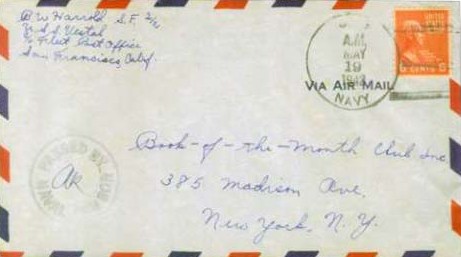 B W Harrold S.F. 2/c
U.S.S. Vestal
% Fleet Post Office
San Francisco, Calif.
A.M.
MAY
19
NAVY
UNITED STATES
6 CENTS 6
VIA AIR MAIL
PASSED BY NAVAL
AK
Book-of-the-Month Club Inc
385 Madison Ave.
New York, N. Y.